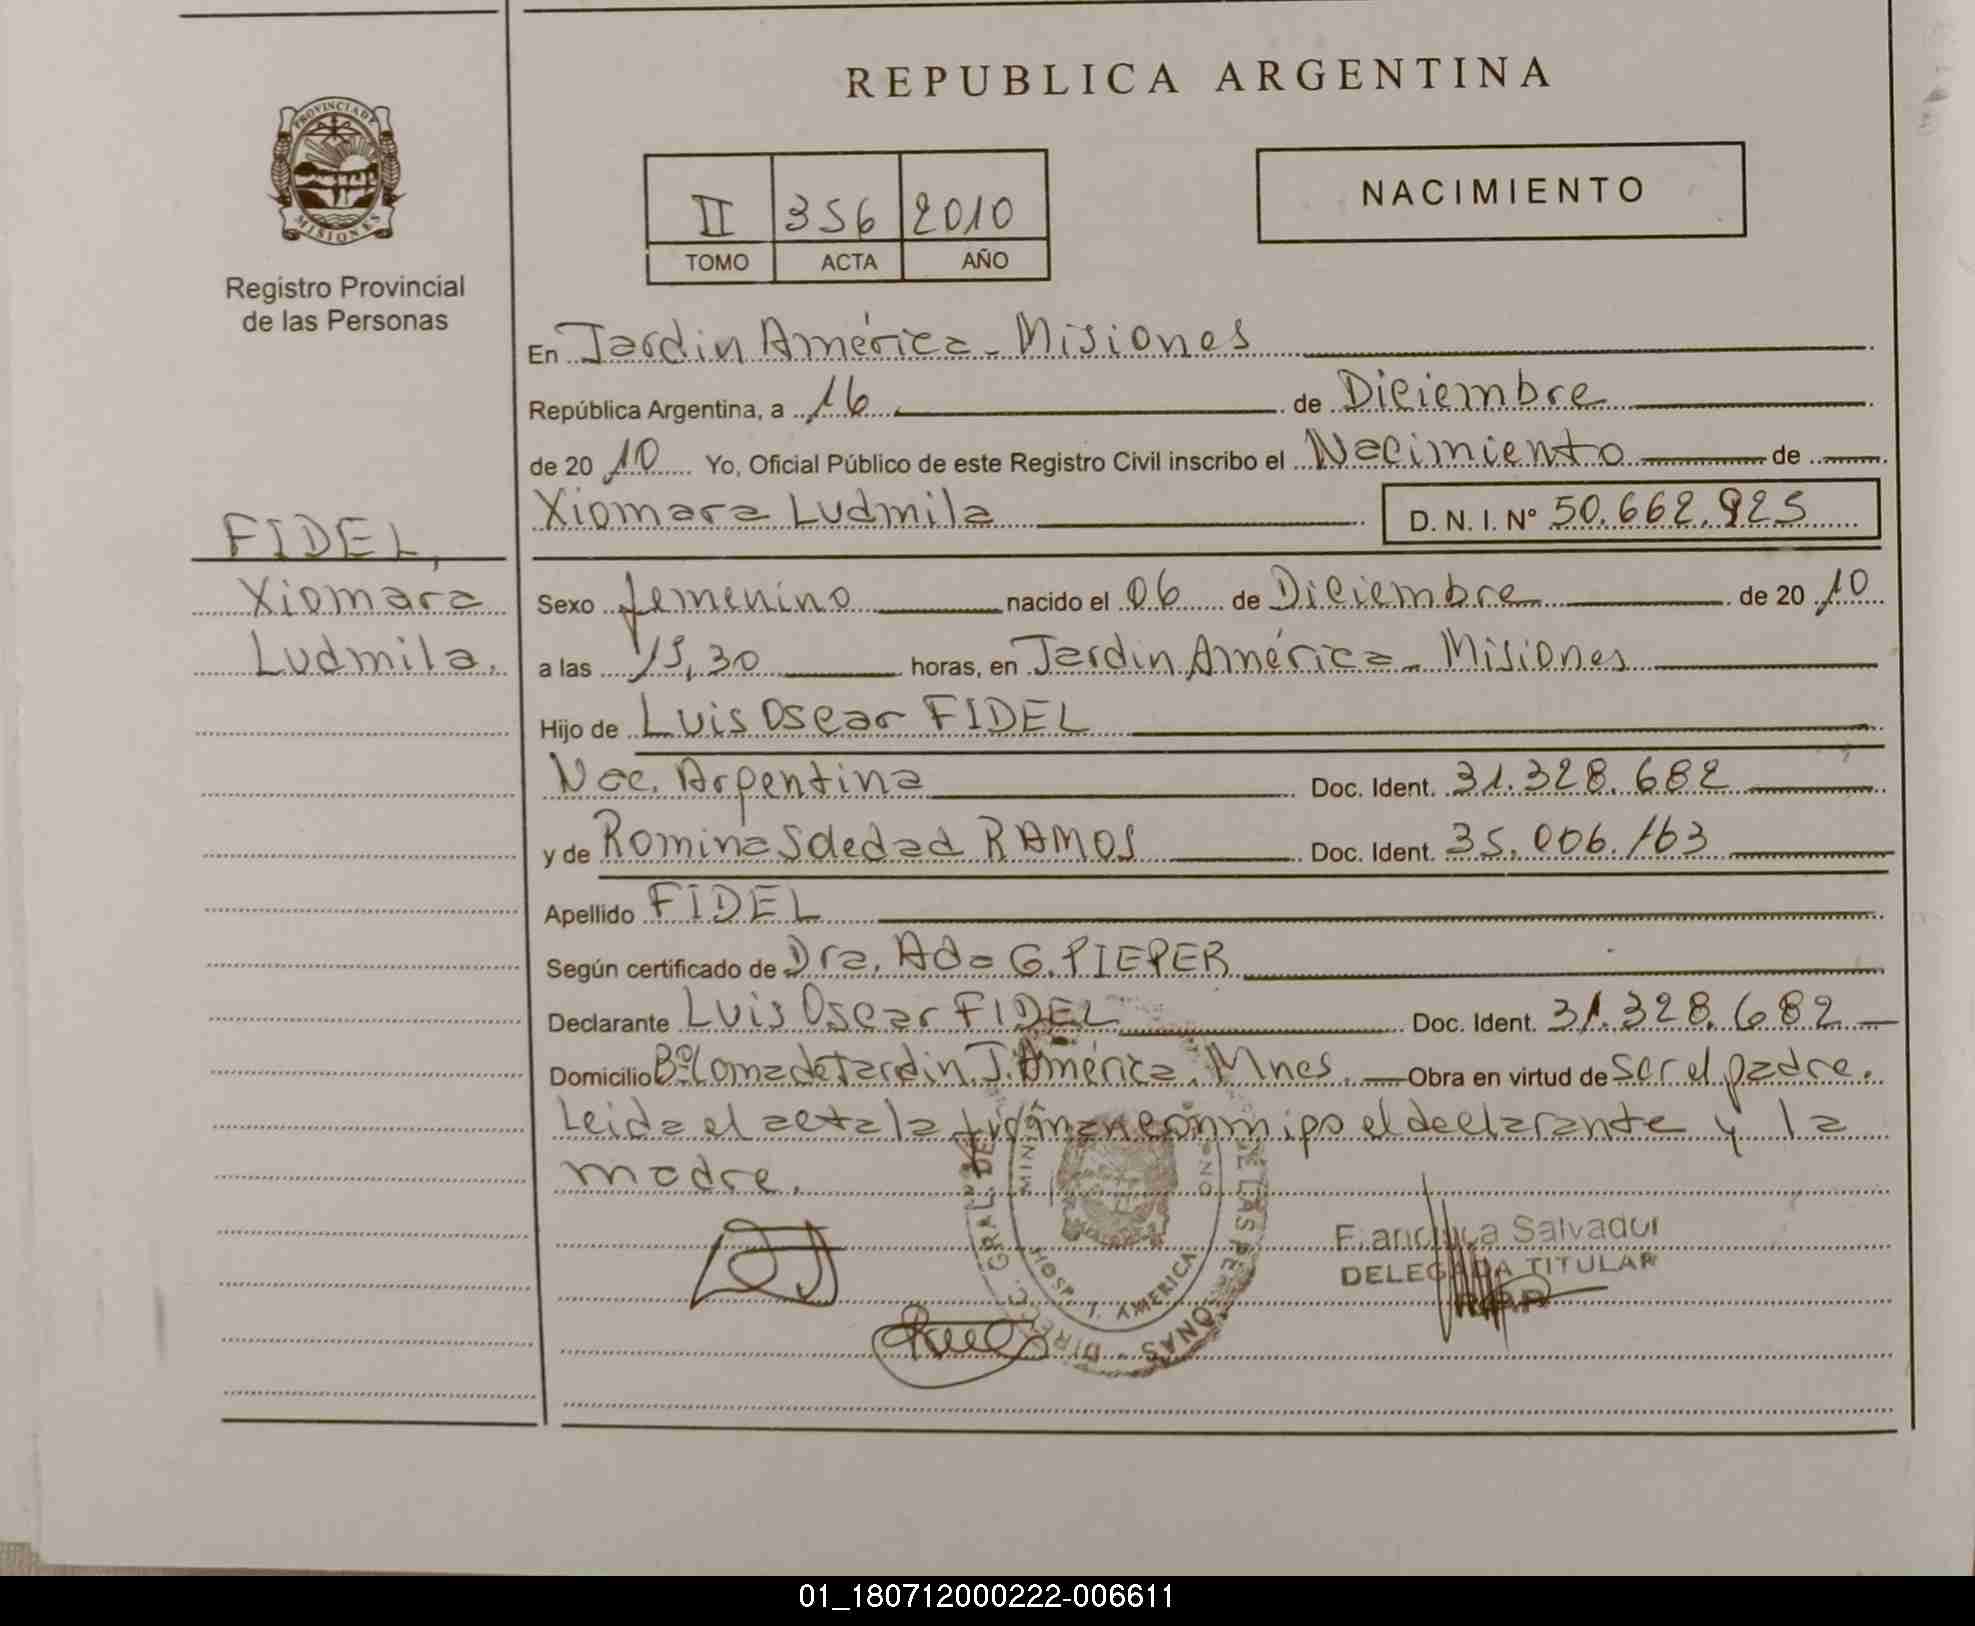 REPUBLICA ARGENTINA
PROVINCIA DE
MISIONES
Registro Provincial
de las Personas
NACIMIENTO
II 356 2010
TOMO ACTA AÑO
En Jardin América - Misiones
República Argentina, a 16 de Diciembre
de 20 10 Yo, Oficial Público de este Registro Civil inscribo el Nacimiento de
Xiomara Ludmila D. N. I. Nº 50.662.925
FIDEL,
Xiomara
Ludmila.
Sexo femenino nacido el 06 de Diciembre de 20 10
a las 15,30 horas, en Jardin América - Misiones
Hijo de Luis Oscar FIDEL
Nac. Argentina Doc. Ident. 31.328.682
y de Romina Soledad RAMOS Doc. Ident. 35.006.163
Apellido FIDEL
Según certificado de Dra. Ada G. PIEPER
Declarante Luis Oscar FIDEL Doc. Ident. 31.328.682
Domicilio Bº Loma de Jardin. J. América. Mnes. Obra en virtud de ser el padre.
Leida el acta la firman conmigo el declarante y la
madre.
GRAL. DE LAS PERSONAS
HOSP. J. AMERICA
Salvador
DELEGADA TITULAR
01_180712000222-006611